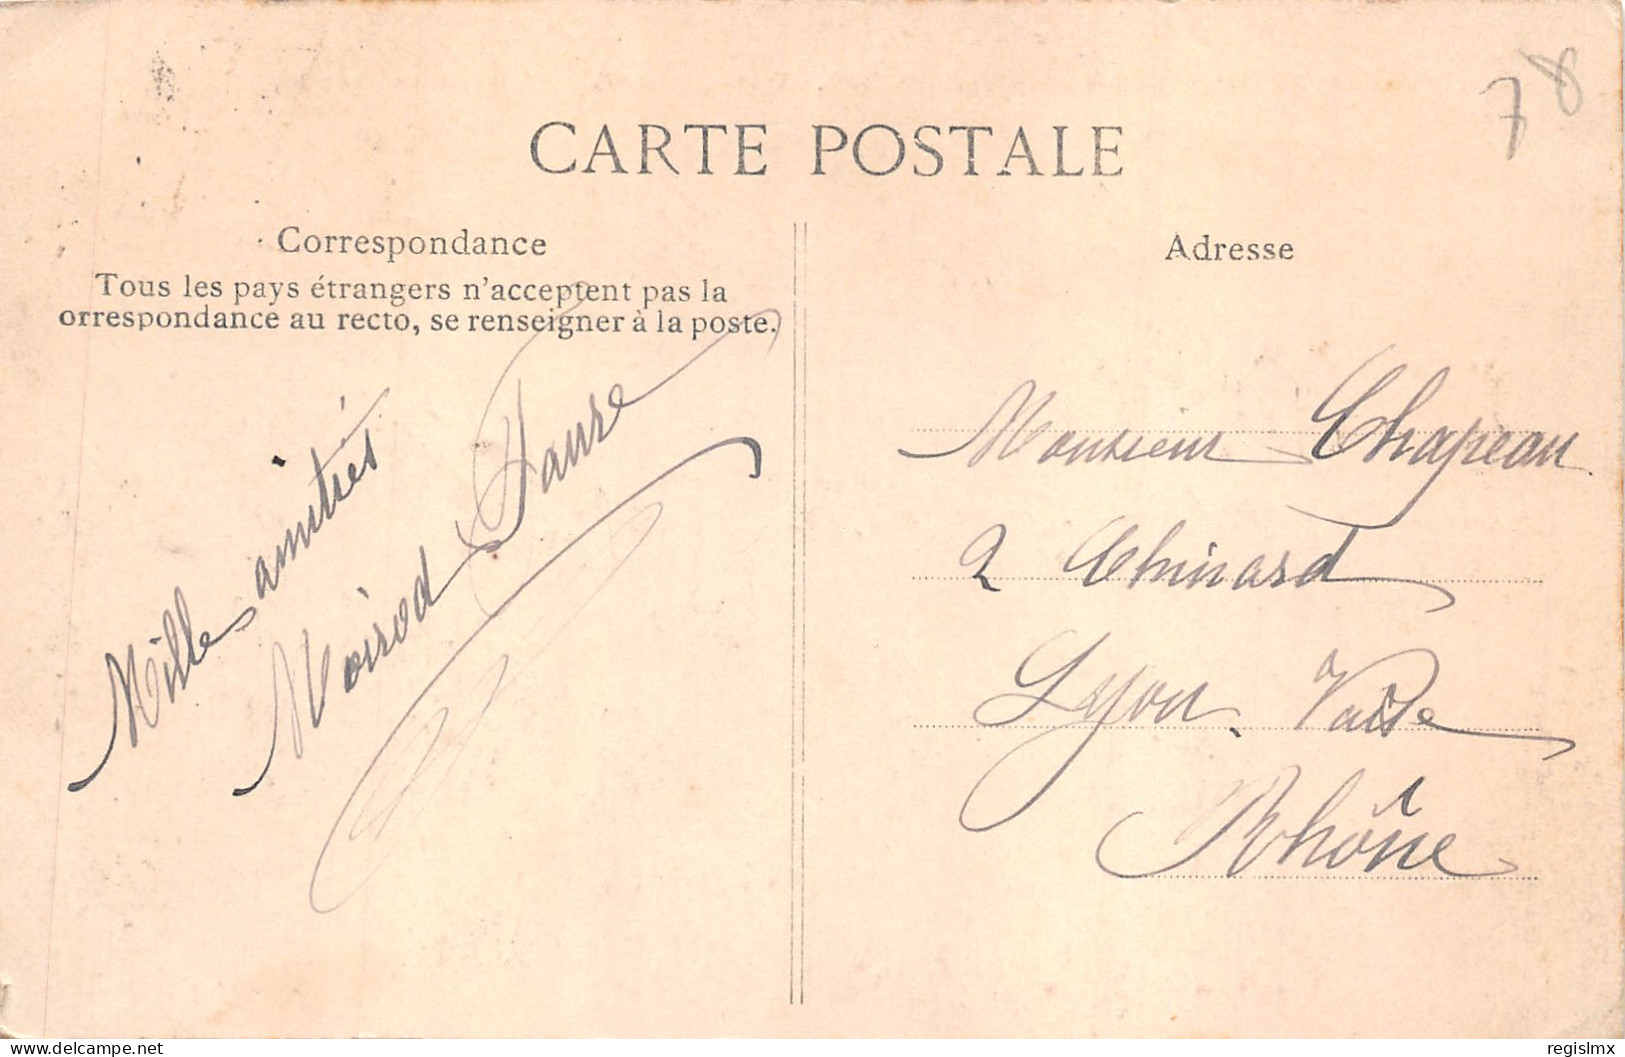 CARTE POSTALE
78
Correspondance
Tous les pays étrangers n'acceptent pas la
orrespondance au recto, se renseigner à la poste.
Mille amitiés
Moirod Faure
Adresse
Monsieur Chapeau
2 Chinard
Lyon. Vaise
Rhône
delcampe.net
regislmx